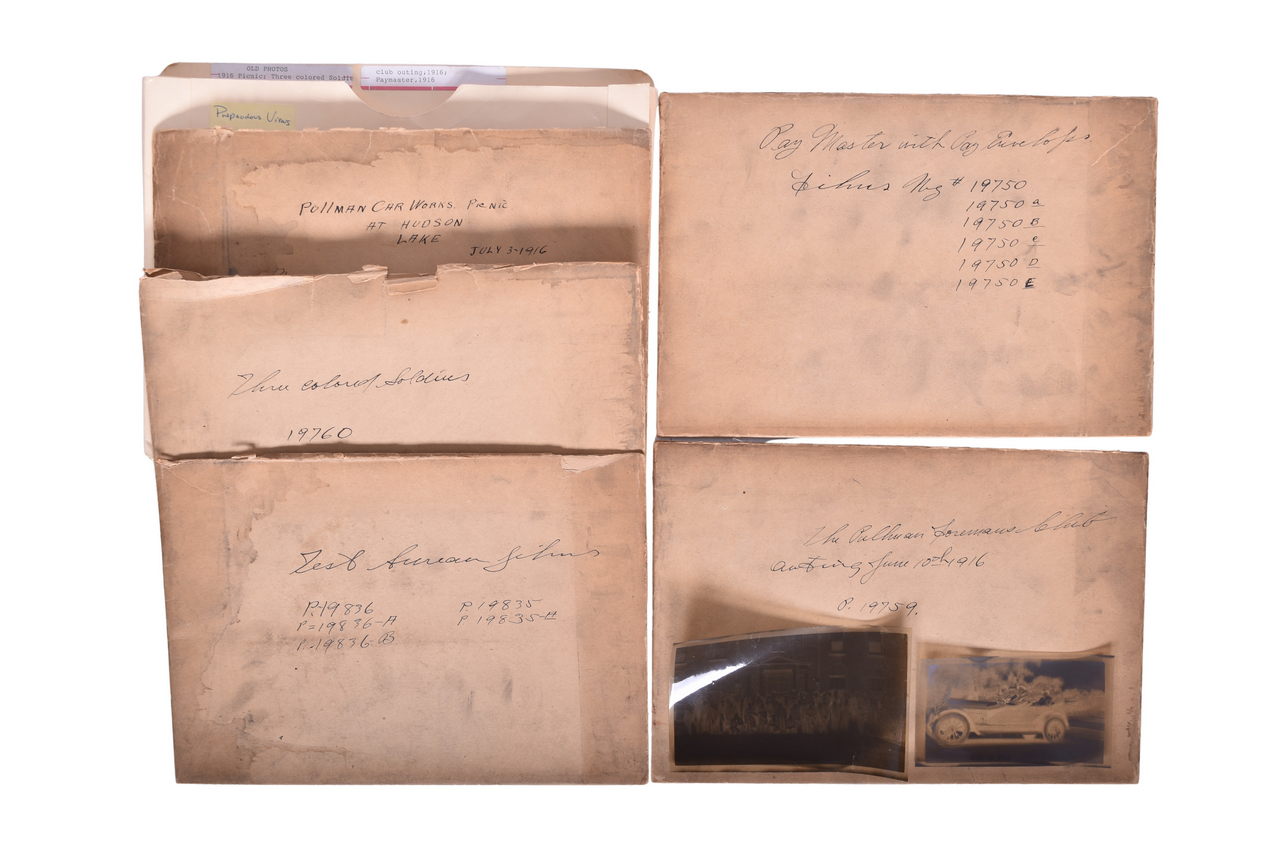 OLD PHOTOS
1916 Picnic; Three colored Soldie
club outing,1916;
Paymaster,1916
Views
PULLMAN CAR WORKS PICNIC
AT HUDSON
LAKE
JULY 3-1916
Three colored Soldiers
19760
Test Bureau films
P-19836
P-19836-A
P-19836-B
P.19835
P 19835-A
Pay Master with Pay Envelops
Films Neg # 19750
19750 a
19750 B
19750 c
19750 D
19750 E
The Pullman Foremans Club
outing June 10th 1916
P. 19759.